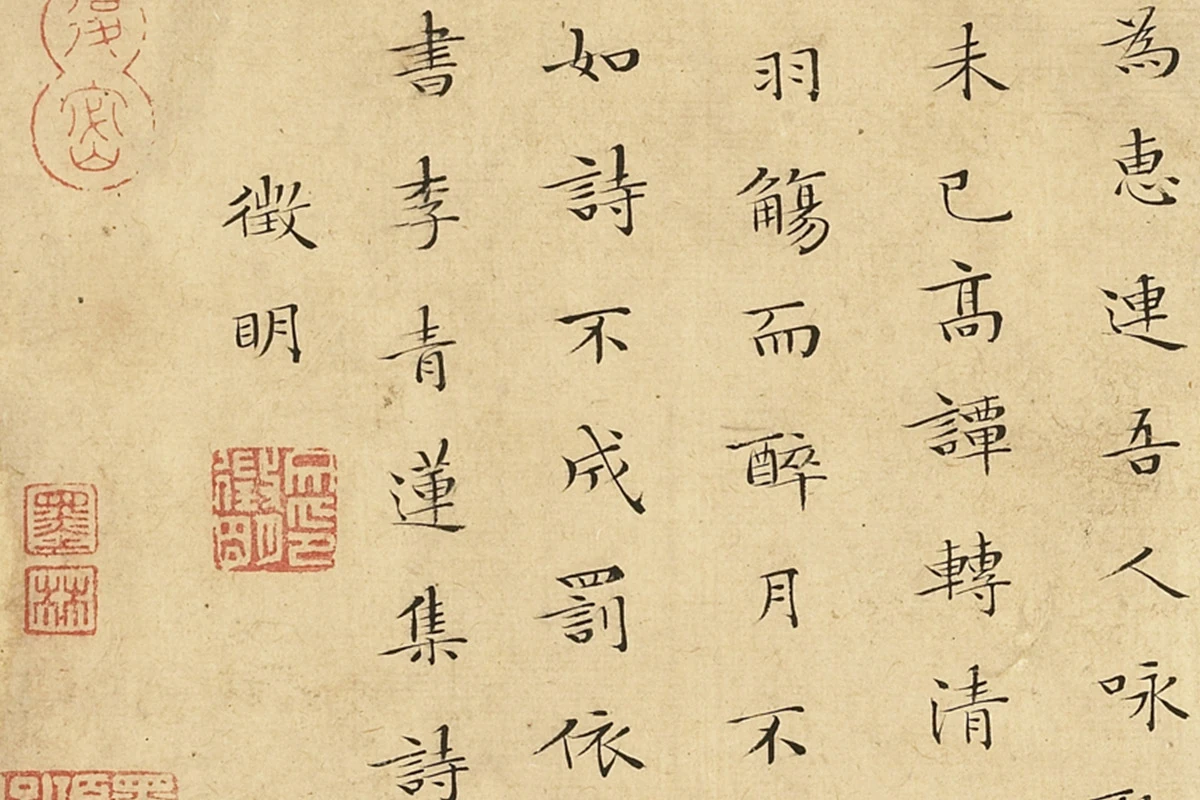 為惠連吾人咏
未已高譚轉清
羽觴而醉月不
如詩不成罰依
書李青蓮集詩
徵明
墨林